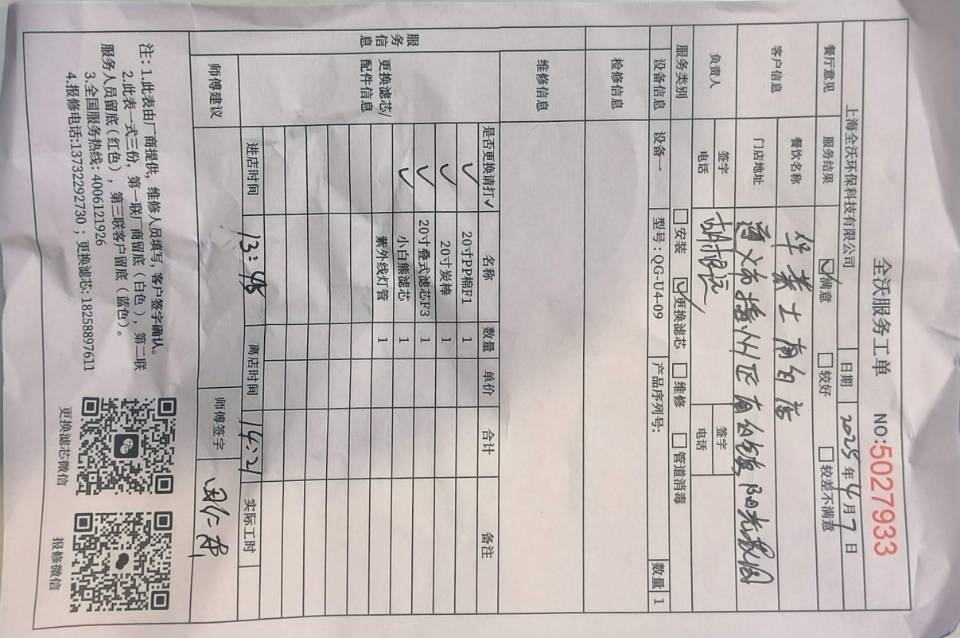 全沃服务工单
NO:5027933
上海全沃环保科技有限公司 日期 2025年4月7日
餐厅意见 服务结果 ☑满意 □较好 □较差不满意
客户信息 餐饮名称 华莱士南白店
门店地址 遵义市播州区南白镇
负责人 签字 签字
电话 电话
服务类别 □安装 ☑更换滤芯 □维修 □管道消毒
设备信息 设备一 型号:QG-U4-09 产品序列号: 数量 1
检修信息
维修信息
服务信息
更换滤芯/配件信息
是否更换请打✓ 名称 数量 单价 合计 备注
✓ 20寸PP棉F1 1
✓ 20寸炭棒 1
✓ 20寸叠式滤芯F3 1
✓ 小白熊滤芯 1
紫外线灯管 1
进店时间 13:48 离店时间 14:21 实际工时
师傅建议 师傅签字
注:1.此表由厂商提供,维修人员填写,客户签字确认。
2.此表一式三份,第一联厂商留底(白色),第二联
服务人员留底(红色),第三联客户留底(蓝色)。
3.全国服务热线:4006121926
4.报修电话:13732292730;更换滤芯:18258897611
更换滤芯微信
报修微信